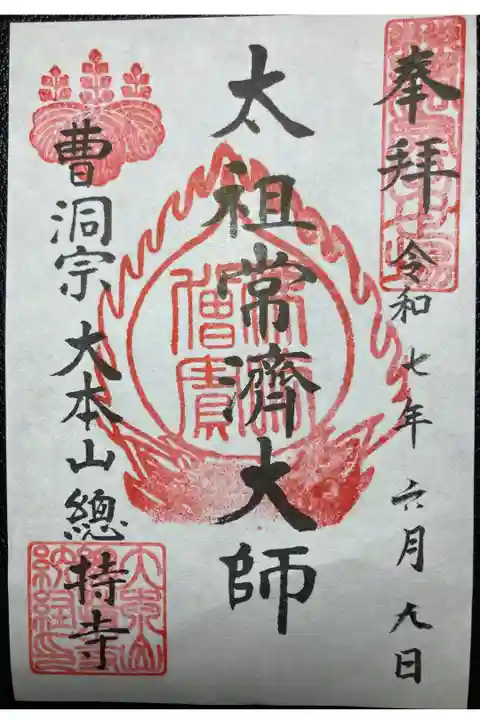 奉拝 令和七年 六月 九日
太祖常濟大師
曹洞宗 大本山 總持寺